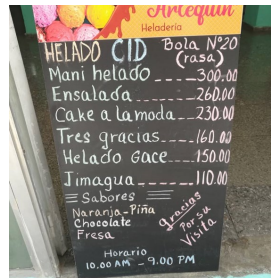 Arlequin
Heladería
HELADO CID Bola Nº20
(rasa)
Maní helado ---- 300.00
Ensalada ----- 260.00
Cake a la moda -- 230.00
Tres gracias ---- 160.00
Helado Gace --- 150.00
Jimagua ---- 110.00
Sabores
Naranja-Piña
Chocolate
Fresa
gracias
Por su
Visita
Horario
10.00 AM - 9.00 PM